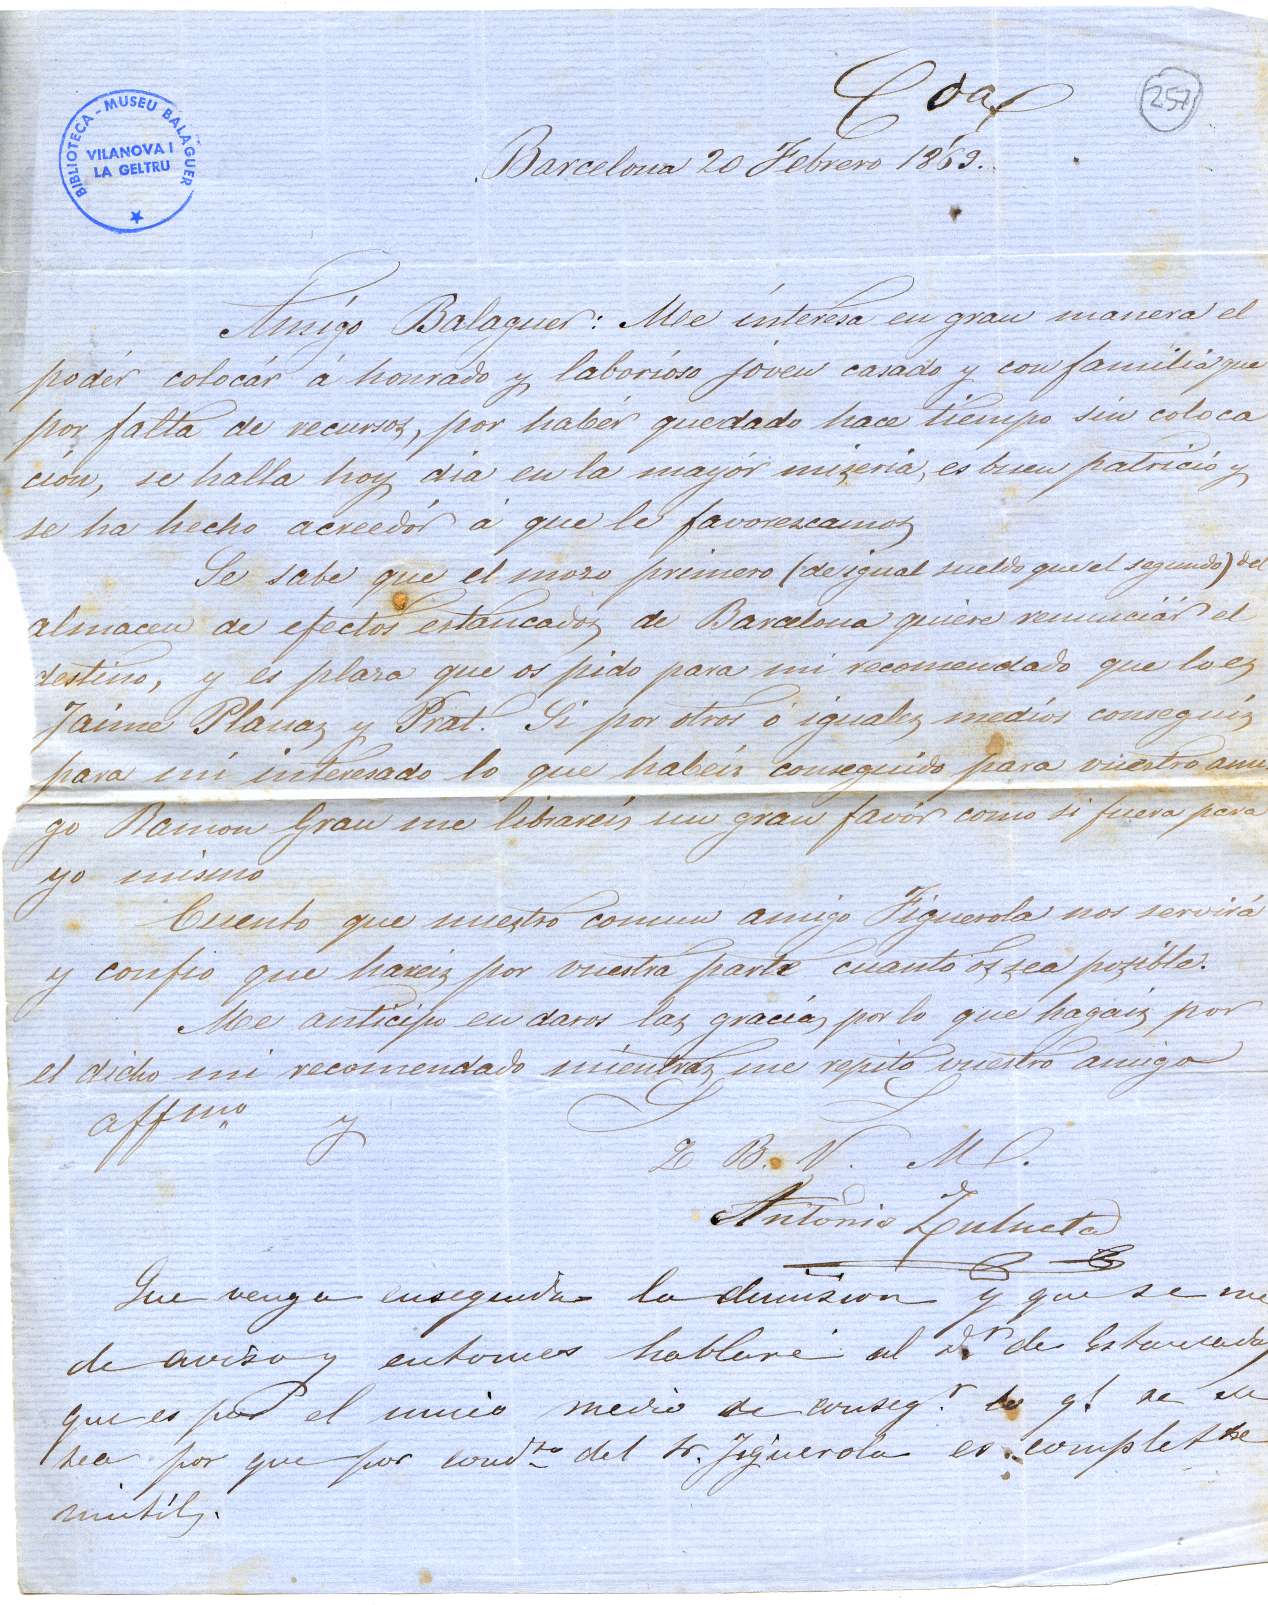 Cda
257
BIBLIOTECA - MUSEU BALAGUER
VILANOVA I
LA GELTRU
Barcelona 20 Febrero 1869.
Amigo Balaguer: Me interesa en gran manera el
podér colocár á honrado y laborioso jóven casado y con familia que
por falta de recursos, por habér quedado hace tiempo sin coloca
ción, se halla hoy dia en la mayór miseria, es buen patricio y
se ha hecho acreedór á que le favorezcamos
Se sabe que el mozo primero (de igual sueldo que el segundo) del
almacen de efectos estancados de Barcelona quiere renunciár el
destino, y es plaza que os pido para mi recomendado que lo es
Jaime Planas y Prat. Si por otros ó iguales medios conseguís
para mi interesado lo que habéis conseguido para vuestro ami
go Ramon Grau me libraréis un gran favór como si fuera para
yo mismo
Cuento que nuestro comun amigo Figuerola nos servirá
y confio que hareis por vuestra parte cuanto os sea posible.
Me anticipo en daros las gracias por lo que hagáis por
el dicho mi recomendado mientras me repito vuestro amigo
affmo y S. S.
Q B. V. M.
Antonio Zulueta
Que venga enseguida la dimision y que se me
de aviso y entonces hablaré al Dr de Estancadas
que es por el unico medio de consegr lo q! se de
sea por que por condto del Sr. Figuerola es completate
inutil.